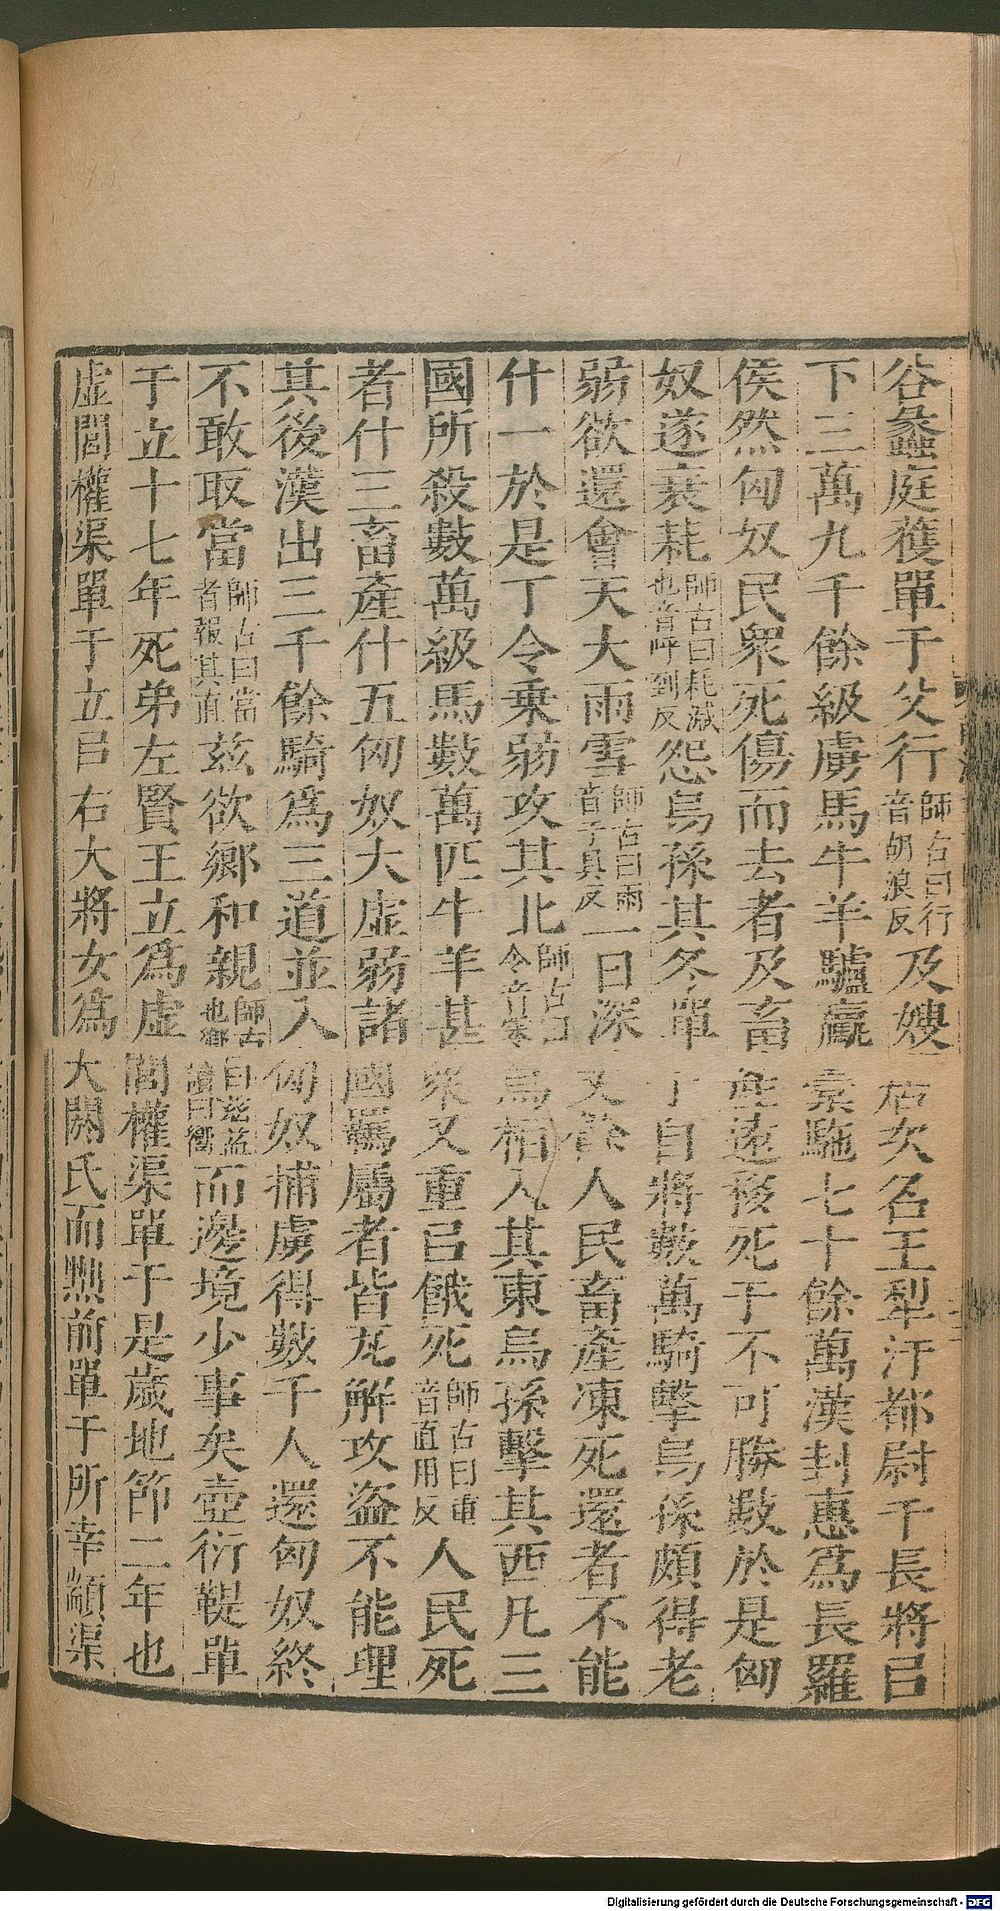 谷蠡庭獲單于父行師古曰行音胡浪反及嫂居次名王犁汙都尉千長將㠯
下三萬九千餘級虜馬牛羊驢臝橐駞七十餘萬漢封惠爲長羅
侯然匈奴民衆死傷而去者及畜產遠移死亡不可勝數於是匈
奴遂衰耗師古曰耗減也音呼到反怨烏孫其冬單于自將數萬騎擊烏孫頗得老
弱欲還會天大雨雪師古曰雨音于具反一日深丈餘人民畜產凍死還者不能
什一於是丁令乗弱攻其北師古曰令音零烏桓入其東烏孫擊其西凡三
國所殺數萬級馬數萬匹牛羊甚衆又重㠯餓死師古曰重音直用反人民死
者什三畜產什五匈奴大虛弱諸國羈屬者皆瓦解攻盜不能理
其後漢出三千餘騎爲三道並入匈奴捕虜得數千人還匈奴終
不敢取當師古曰當者報其直茲欲鄉和親師古曰茲益也鄉讀曰嚮而邊境少事矣壺衍鞮單
于立十七年死弟左賢王立爲虛閭權渠單于是歲地節二年也
虛閭權渠單于立㠯右大將女爲大閼氏而黜前單于所幸顓渠
Digitalisierung gefördert durch die Deutsche Forschungsgemeinschaft - DFG